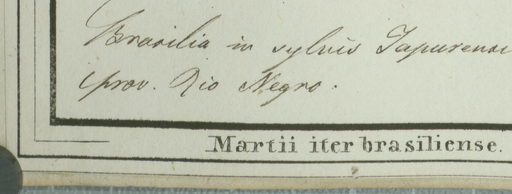 Brasilia in sylvis Japurensi
prov. Rio Negro.
Martii iter brasiliense.